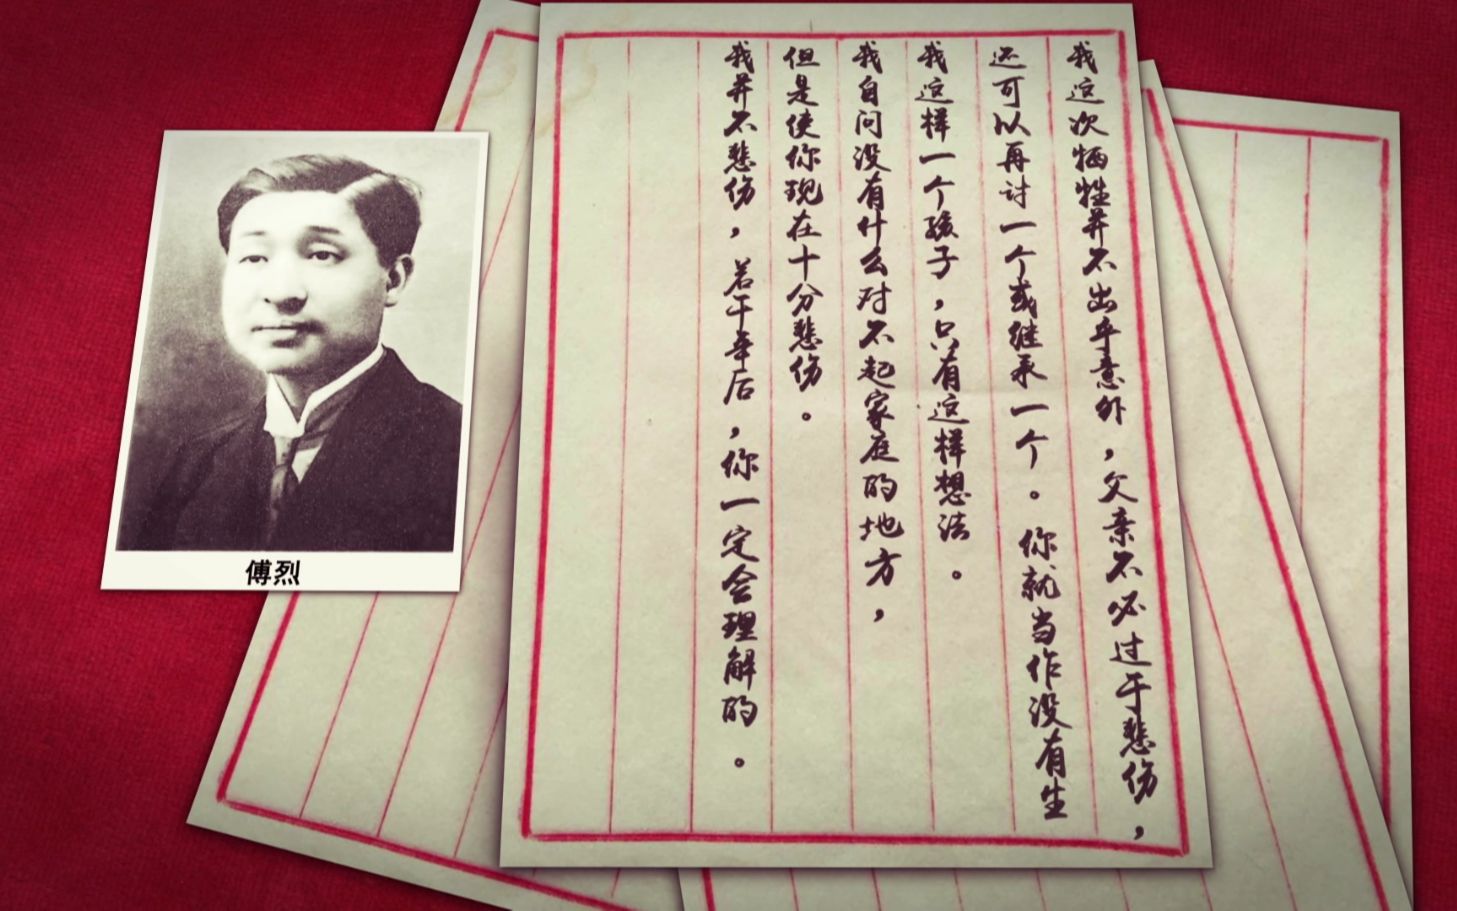 我这次牺牲并不出乎意外，父亲不必过于悲伤，
还可以再讨一个或继承一个。你就当作没有生
我这样一个孩子，只有这样想法。
我自问没有什么对不起家庭的地方，
但是使你现在十分悲伤。
我并不悲伤，若干年后，你一定会理解的。
傅烈